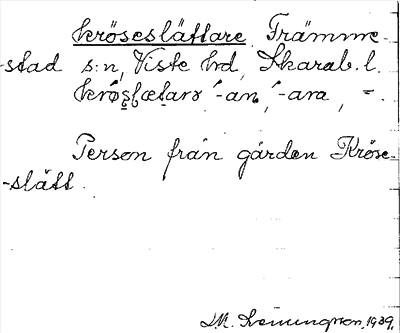 kröseslättare. Främme-
stad s:n, Viste hd, Skarab. l.
krǿsḷætarə ´-an, ´-ara, =.
Person från gården Kröse-
-slätt.
1939.